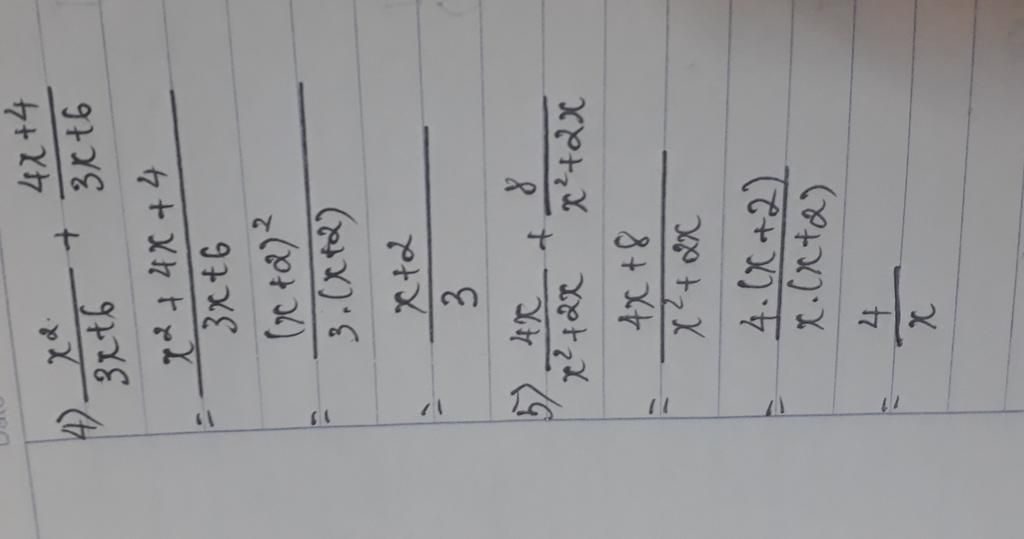 Date
4) x²/3x+6 + 4x+4/3x+6
= x²+4x+4/3x+6
= (x+2)²/3.(x+2)
= x+2/3
5) 4x/x²+2x + 8/x²+2x
= 4x+8/x²+2x
= 4.(x+2)/x.(x+2)
= 4/x